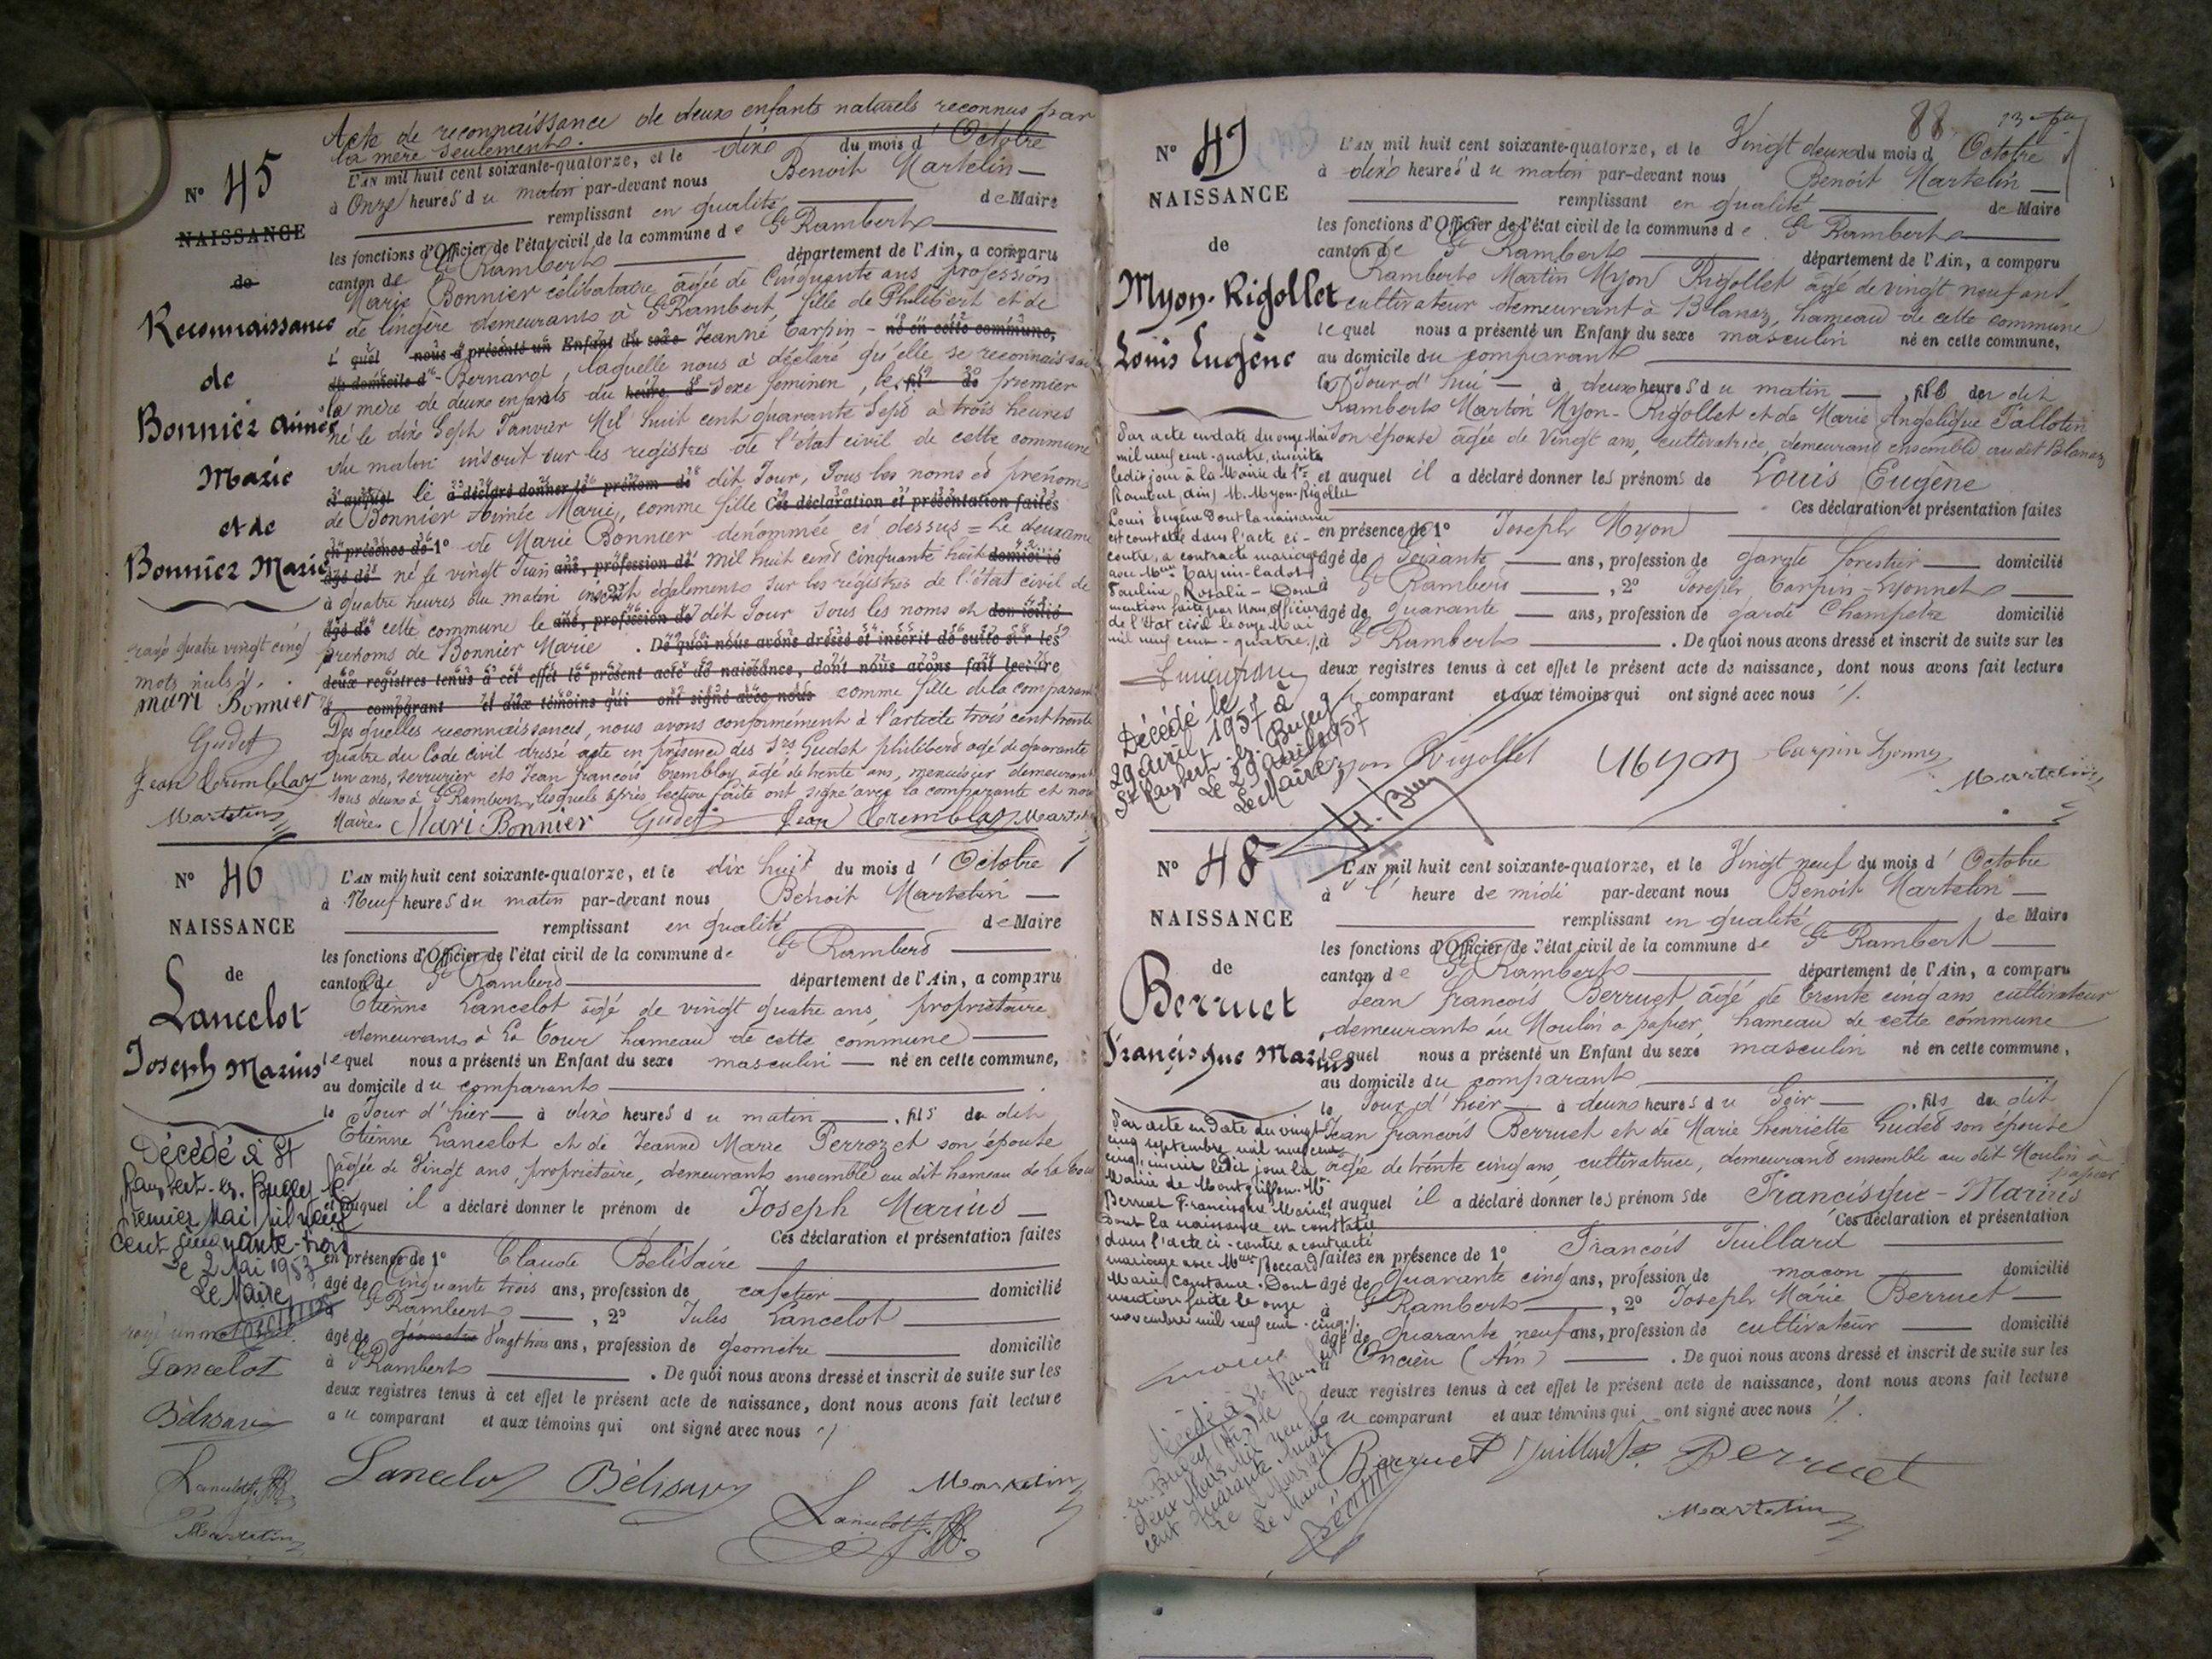 Acte de reconnaissance de deux enfants naturels reconnus par
la mère seulement.
N° 45
NAISSANCE
de
Reconnaissance
de
Bonnier Aimée
Marie
et de
Bonnier Marie
rayé quatre vingt cinq
mots nuls
mari Bonnier
Gudet
Jean Tremblay
Martelin
L'AN mil huit cent soixante-quatorze, et le dix du mois d' Octobre
à Onze heures du matin par-devant nous Benoit Martelin
remplissant en qualité de Maire
les fonctions d'Officier de l'état civil de la commune de St Rambert
canton de St Rambert département de l'Ain, a comparu
Marie Bonnier célibataire, âgée de Cinquante ans profession
de lingère demeurant à St Rambert, fille de Philibert et de
l quel nous a présenté un Enfant du sexe Jeanne Carpin - né en cette commune,
au domicile d - Bernard, laquelle nous a déclaré qu'elle se reconnaissait
la mère de deux enfants du heure d sexe féminin, le fil de premier
né le dix Sept Janvier Mil huit cent quarante sept à trois heures
du matin inscrit sur les registres de l'état civil de cette commune
et auquel le a déclaré donner le prénom de dit Jour, sous les noms et prénoms
de Bonnier Aimée Marie, comme fille Ces déclaration et présentation faites
en présence de 1° de Marie Bonnier dénommée ci dessus = Le deuxième
âgé de né le vingt Juin ans, profession de mil huit cent cinquante huit domicilié
à quatre heures du matin inscrit également sur les registres de l'état civil de
âgé de cette commune le ans, profession de dit Jour sous les noms et domicilié
prénoms de Bonnier Marie . De quoi nous avons dressé et inscrit de suite sur les
deux registres tenus à cet effet le présent acte de naissance, dont nous avons fait lecture
a comparant et aux témoins qui ont signé avec nous comme fille de la comparante
Des quelles reconnaissances, nous avons conformément à l'article trois cent trente
quatre du Code civil dressé acte en présence des Srs Gudet philibert agé de quarante
un ans, serrurier et Jean François Tremblay, âgé de trente ans, menuisier demeurant
tous deux à St Rambert, lesquels après lecture faite ont signé avec la comparante et nous
Maire. Mari Bonnier Gudet Jean Tremblay Martelin
N° 46
NAISSANCE
de
Lancelot
Joseph Marius
Décédé à St
Rambert-en-Bugey le
premier Mai mil neuf
cent cinquante-trois
Le 2 Mai 1953
Le Maire,
rayé un mot nul.
Lancelot
Bélisaire
Lancelot
Martelin
L'AN mil huit cent soixante-quatorze, et le dix huit du mois d' Octobre
à Neuf heures du matin par-devant nous Benoit Martelin
remplissant en qualité de Maire
les fonctions d'Officier de l'état civil de la commune de St Rambert
canton de St Rambert département de l'Ain, a comparu
Etienne Lancelot âgé de vingt quatre ans, propriétaire
demeurant à La Tour hameau de cette commune
lequel nous a présenté un Enfant du sexe masculin né en cette commune,
au domicile du comparant
le Jour d'hier à dix heures du matin, fils du dit
Etienne Lancelot et de Jeanne Marie Perrozet son épouse
âgée de Vingt ans, propriétaire, demeurant ensemble au dit hameau de la Tour
et auquel il a déclaré donner le prénom de Joseph Marius
Ces déclaration et présentation faites
en présence de 1° Claude Belisaire
âgé de Cinquante trois ans, profession de cafetier domicilié
à St Rambert, 2° Jules Lancelot
âgé de géometre Vingt trois ans, profession de géomètre domicilié
à St Rambert . De quoi nous avons dressé et inscrit de suite sur les
deux registres tenus à cet effet le présent acte de naissance, dont nous avons fait lecture
au comparant et aux témoins qui ont signé avec nous
Lancelot Bélisaire Lancelot Martelin
88
N° 47
NAISSANCE
de
Myon-Rigollet
Louis Eugène
Par acte en date du onze Mai
mil neuf cent-quatre, inscrite
ledit jour à la Mairie de St
Rambert (Ain) M. Myon-Rigollet
Louis Eugène dont la naissance
est constatée dans l'acte ci-
contre, a contracté mariage
avec Melle Carpin-Cadot
Pauline Rosalie - Dont
mention faite par nous, officier
de l'Etat civil le onze Mai
mil neuf cent-quatre./.
Décédé le
29 avril 1957 à
St Rambert-en-Bugey
Le 29 avril 1957
Le Maire,
L'AN mil huit cent soixante-quatorze, et le Vingt deux du mois d Octobre
à dix heures du matin par-devant nous Benoit Martelin
remplissant en qualité de Maire
les fonctions d'Officier de l'état civil de la commune de St Rambert
canton de St Rambert département de l'Ain, a comparu
Rambert Martin Myon Rigollet âgé de vingt neuf ans,
cultivateur demeurant à Blanaz, hameau de cette commune
lequel nous a présenté un Enfant du sexe masculin né en cette commune,
au domicile du comparant
le Jour d'hui à deux heures du matin, fils du dit
Rambert Martin Myon-Rigollet et de Marie Angélique Tallotin
son épouse âgée de Vingt ans, cultivatrice, demeurant ensemble au dit Blanaz
et auquel il a déclaré donner les prénoms de Louis Eugène
Ces déclaration et présentation faites
en présence de 1° Joseph Myon
âgé de Soixante ans, profession de garde forestier domicilié
à St Rambert, 2° Joseph Carpin-Lyonnet
âgé de quarante ans, profession de garde Champetre domicilié
à St Rambert . De quoi nous avons dressé et inscrit de suite sur les
deux registres tenus à cet effet le présent acte de naissance, dont nous avons fait lecture
comparant et aux témoins qui ont signé avec nous
Myon Rigollet Myon Carpin Lyonnet
Martelin
N° 48
NAISSANCE
de
Berruet
Francisque Marius
Par acte en date du vingt
cinq septembre mil neuf cent
cinq, inscrit ledit jour la
Mairie de Montgriffon, Mr
Berruet Francisque Marius
dont la naissance est constatée
dans l'acte ci-contre a contracté
mariage avec Melle Boccard
Marie Constance. Dont
mention faite le onze
novembre mil neuf cent-cinq./.
Décédé à St Rambert
en Bugey (Ain) le
deux Mars mil neuf
cent quarante huit
Le Maire
L'AN mil huit cent soixante-quatorze, et le Vingt neuf du mois d' Octobre
à l' heure de midi par-devant nous Benoit Martelin
remplissant en qualité de Maire
les fonctions d'Officier de l'état civil de la commune de St Rambert
canton de St Rambert département de l'Ain, a comparu
Jean François Berruet âgé de trente cinq ans, cultivateur
demeurant au Moulin a papier, hameau de cette commune
lequel nous a présenté un Enfant du sexe masculin né en cette commune,
au domicile du comparant
le Jour d'hier à deux heures du Soir, fils du dit
Jean françois Berruet et de Marie Henriette Gudet son épouse
âgée de trente cinq ans, cultivatrice, demeurant ensemble au dit Moulin à
papier
et auquel il a déclaré donner les prénoms de Francisque-Marius
Ces déclaration et présentation
faites en présence de 1° François Juillard
âgé de Quarante cinq ans, profession de maçon domicilié
à St Rambert, 2° Joseph Marie Berruet
âgé de quarante neuf ans, profession de cultivateur domicilié
à Oncieu (Ain) . De quoi nous avons dressé et inscrit de suite sur les
deux registres tenus à cet effet le présent acte de naissance, dont nous avons fait lecture
au comparant et aux témoins qui ont signé avec nous
Berruet Juillard Berruet
Martelin